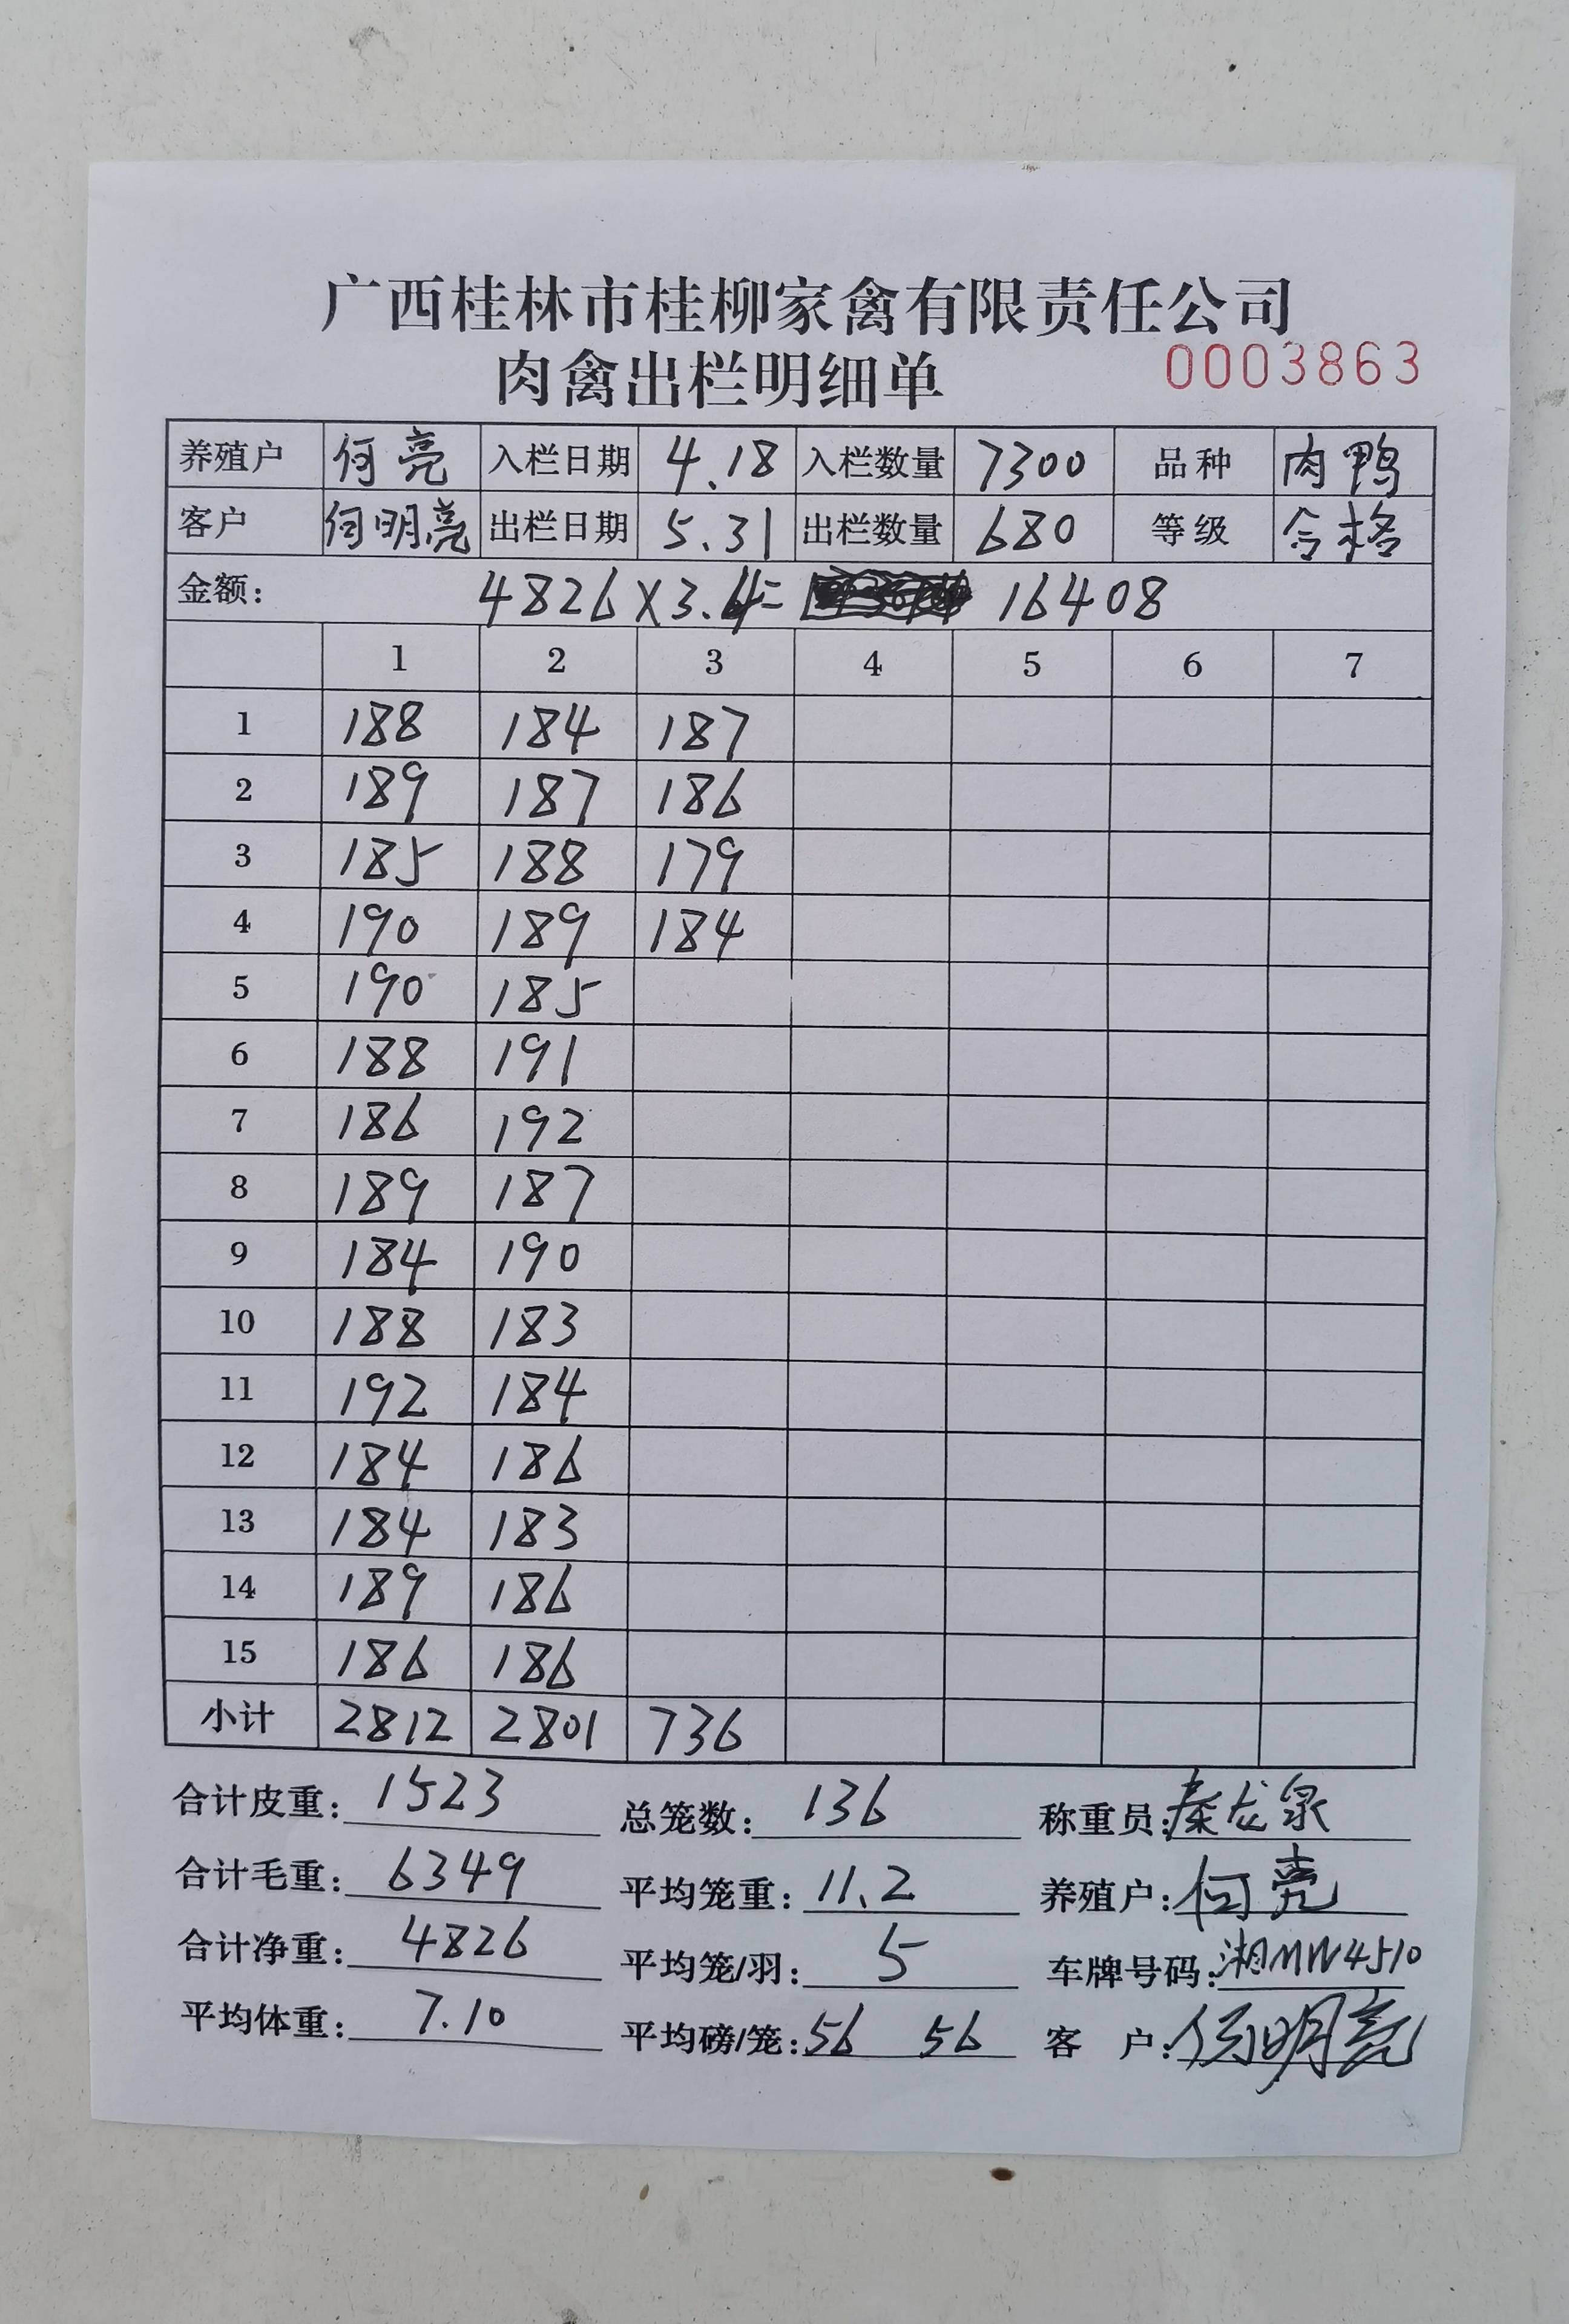 广西桂林市桂柳家禽有限责任公司
肉禽出栏明细单 0003863
养殖户 何亮 入栏日期 4.18 入栏数量 7300 品种 肉鸭
客户 何明亮 出栏日期 5.31 出栏数量 680 等级 合格
金额: 4826×3.4= 16408
1 2 3 4 5 6 7
1 188 184 187
2 189 187 186
3 185 188 179
4 190 189 184
5 190 185
6 188 191
7 186 192
8 189 187
9 184 190
10 188 183
11 192 184
12 184 186
13 184 183
14 189 186
15 186 186
小计 2812 2801 736
合计皮重: 1523 总笼数: 136 称重员: 秦龙泉
合计毛重: 6349 平均笼重: 11.2 养殖户: 何亮
合计净重: 4826 平均笼/羽: 5 车牌号码: 湘MW4510
平均体重: 7.10 平均磅/笼: 56 56 客户: 何明亮